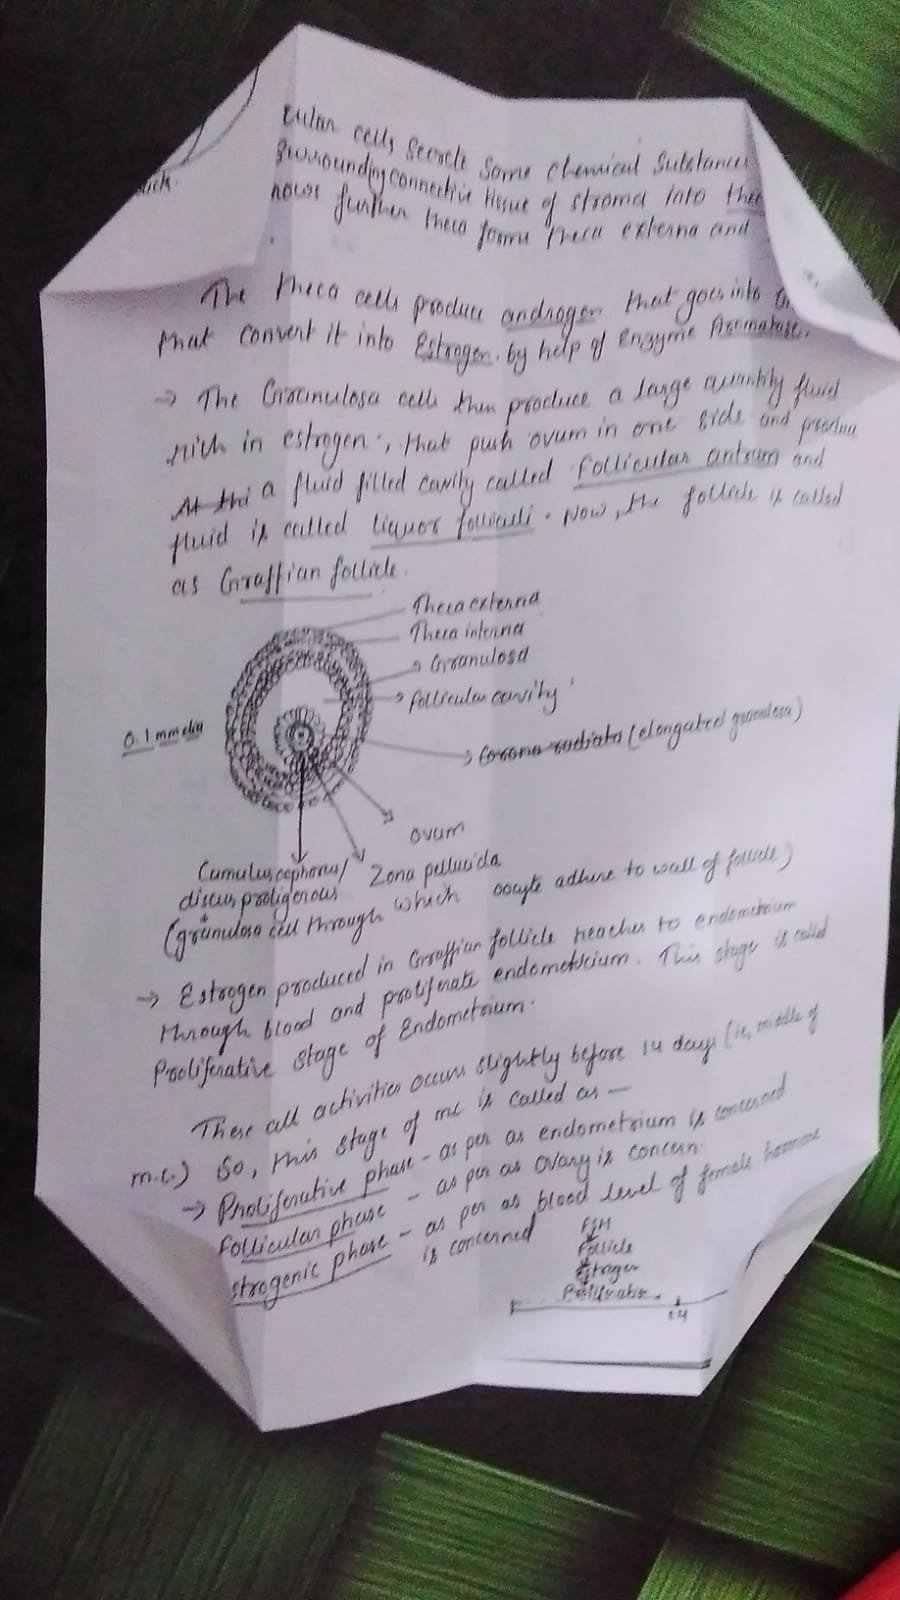 cular cells secrete some chemical substances
surrounding connective tissue of stroma into thec
now further theca forms theca externa and
The theca cells produce androgen that goes into
that convert it into Estrogen. by help of Enzyme Aromatase.
→ The Granulosa cells then produce a large quantity fluid
rich in estrogen, that push ovum in one side and produce
At thi a fluid filled cavity called follicular antrum and
fluid is called liquor folliculi. Now, the follicle is called
as Graffian follicle.
Theca externa
Theca interna
Granulosa
follicular cavity
0.1 mm dia
Corona radiata (elongated granulosa)
ovum
Cumulus oophorus/ Zona pellucida
discus proligerous
(granulosa cell through which oocyte adhere to wall of follicle)
→ Estrogen produced in Graffian follicle reaches to endometrium
through blood and proliferate endometrium. This stage is called
Proliferative stage of Endometrium.
These all activities occurs slightly before 14 days (ie, middle of
m.c.) So, this stage of mc is called as —
→ Proliferative phase - as per as endometrium is concerned
Follicular phase - as per as ovary is concern.
strogenic phase - as per as blood level of female hormone
is concerned
FSH
Follicle
Estrogen
14